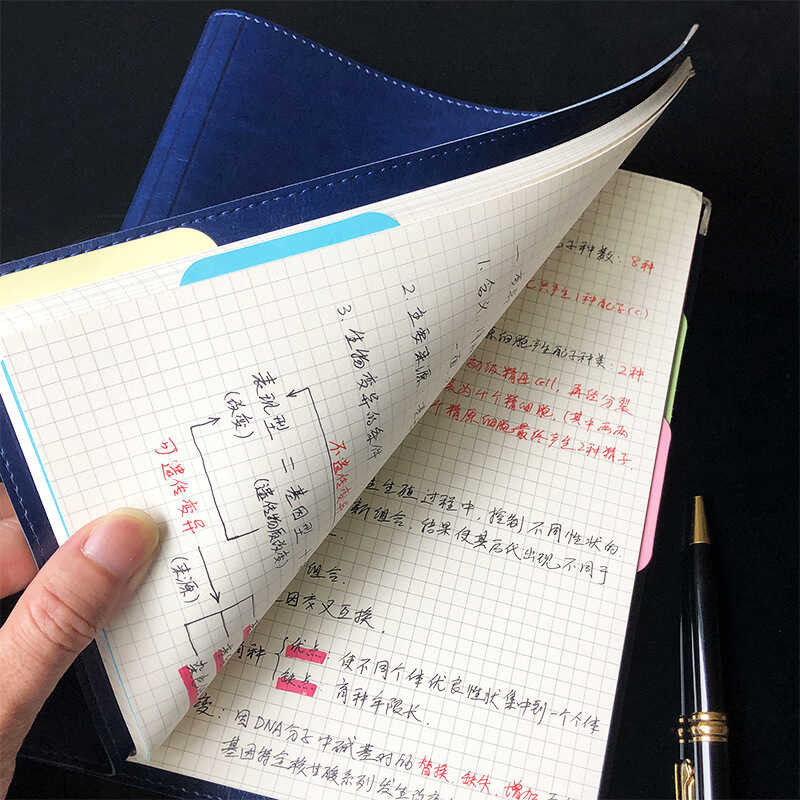 一
1. 含义
2. 主要来源
3. 生物变异的条件
表现型 = 基因型
(改变) (遗传物质改变)
不遗传变异
可遗传变异
(来源)
子种数: 8种
只产生1种配子(C)
原细胞产生配子种类: 2种.
级精母cell, 再经分裂
为4个精细胞. (其中两两
个精原细胞最终产生2种精子.
生殖过程中, 控制不同性状的
新组合, 结果使其后代出现不同于
组合.
因交叉互换.
育种 优点: 使不同个体优良性状集中到一个个体
缺点: 育种年限长.
变: 因DNA分子中碱基对的替换、缺失、增加